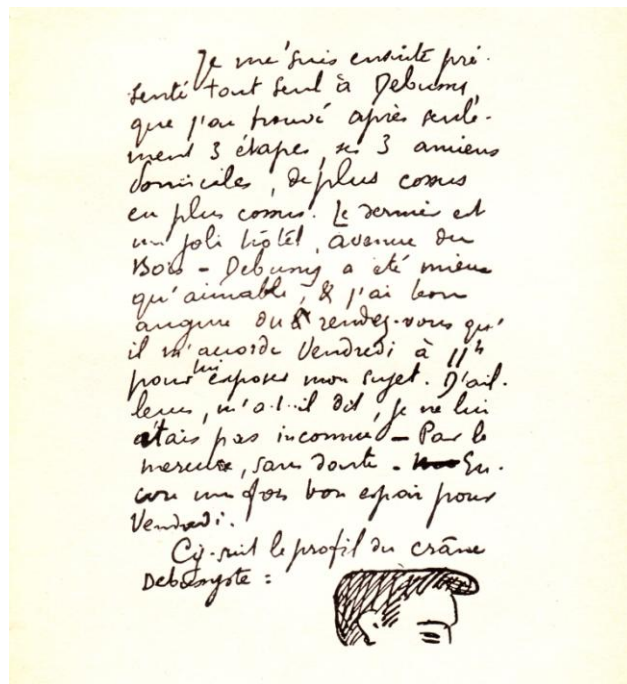 Je me suis ensuite pré-
senté tout seul à Debussy,
que j'ai trouvé après seule-
ment 3 étapes, ses 3 anciens
domiciles, de plus cossus
en plus cossus. Le dernier est
un joli hôtel, avenue du
Bois – Debussy a été mieux
qu'aimable, & j'ai bon
augure du rendez-vous qu'
il m'accorde Vendredi à 11h
pour lui exposer mon sujet. D'ail-
leurs, m'a-t-il dit, je ne lui
étais pas inconnu – Par le
mercure, sans doute – En-
core une fois bon espoir pour
Vendredi.
Cy-suit le profil du crâne
Debussyste :